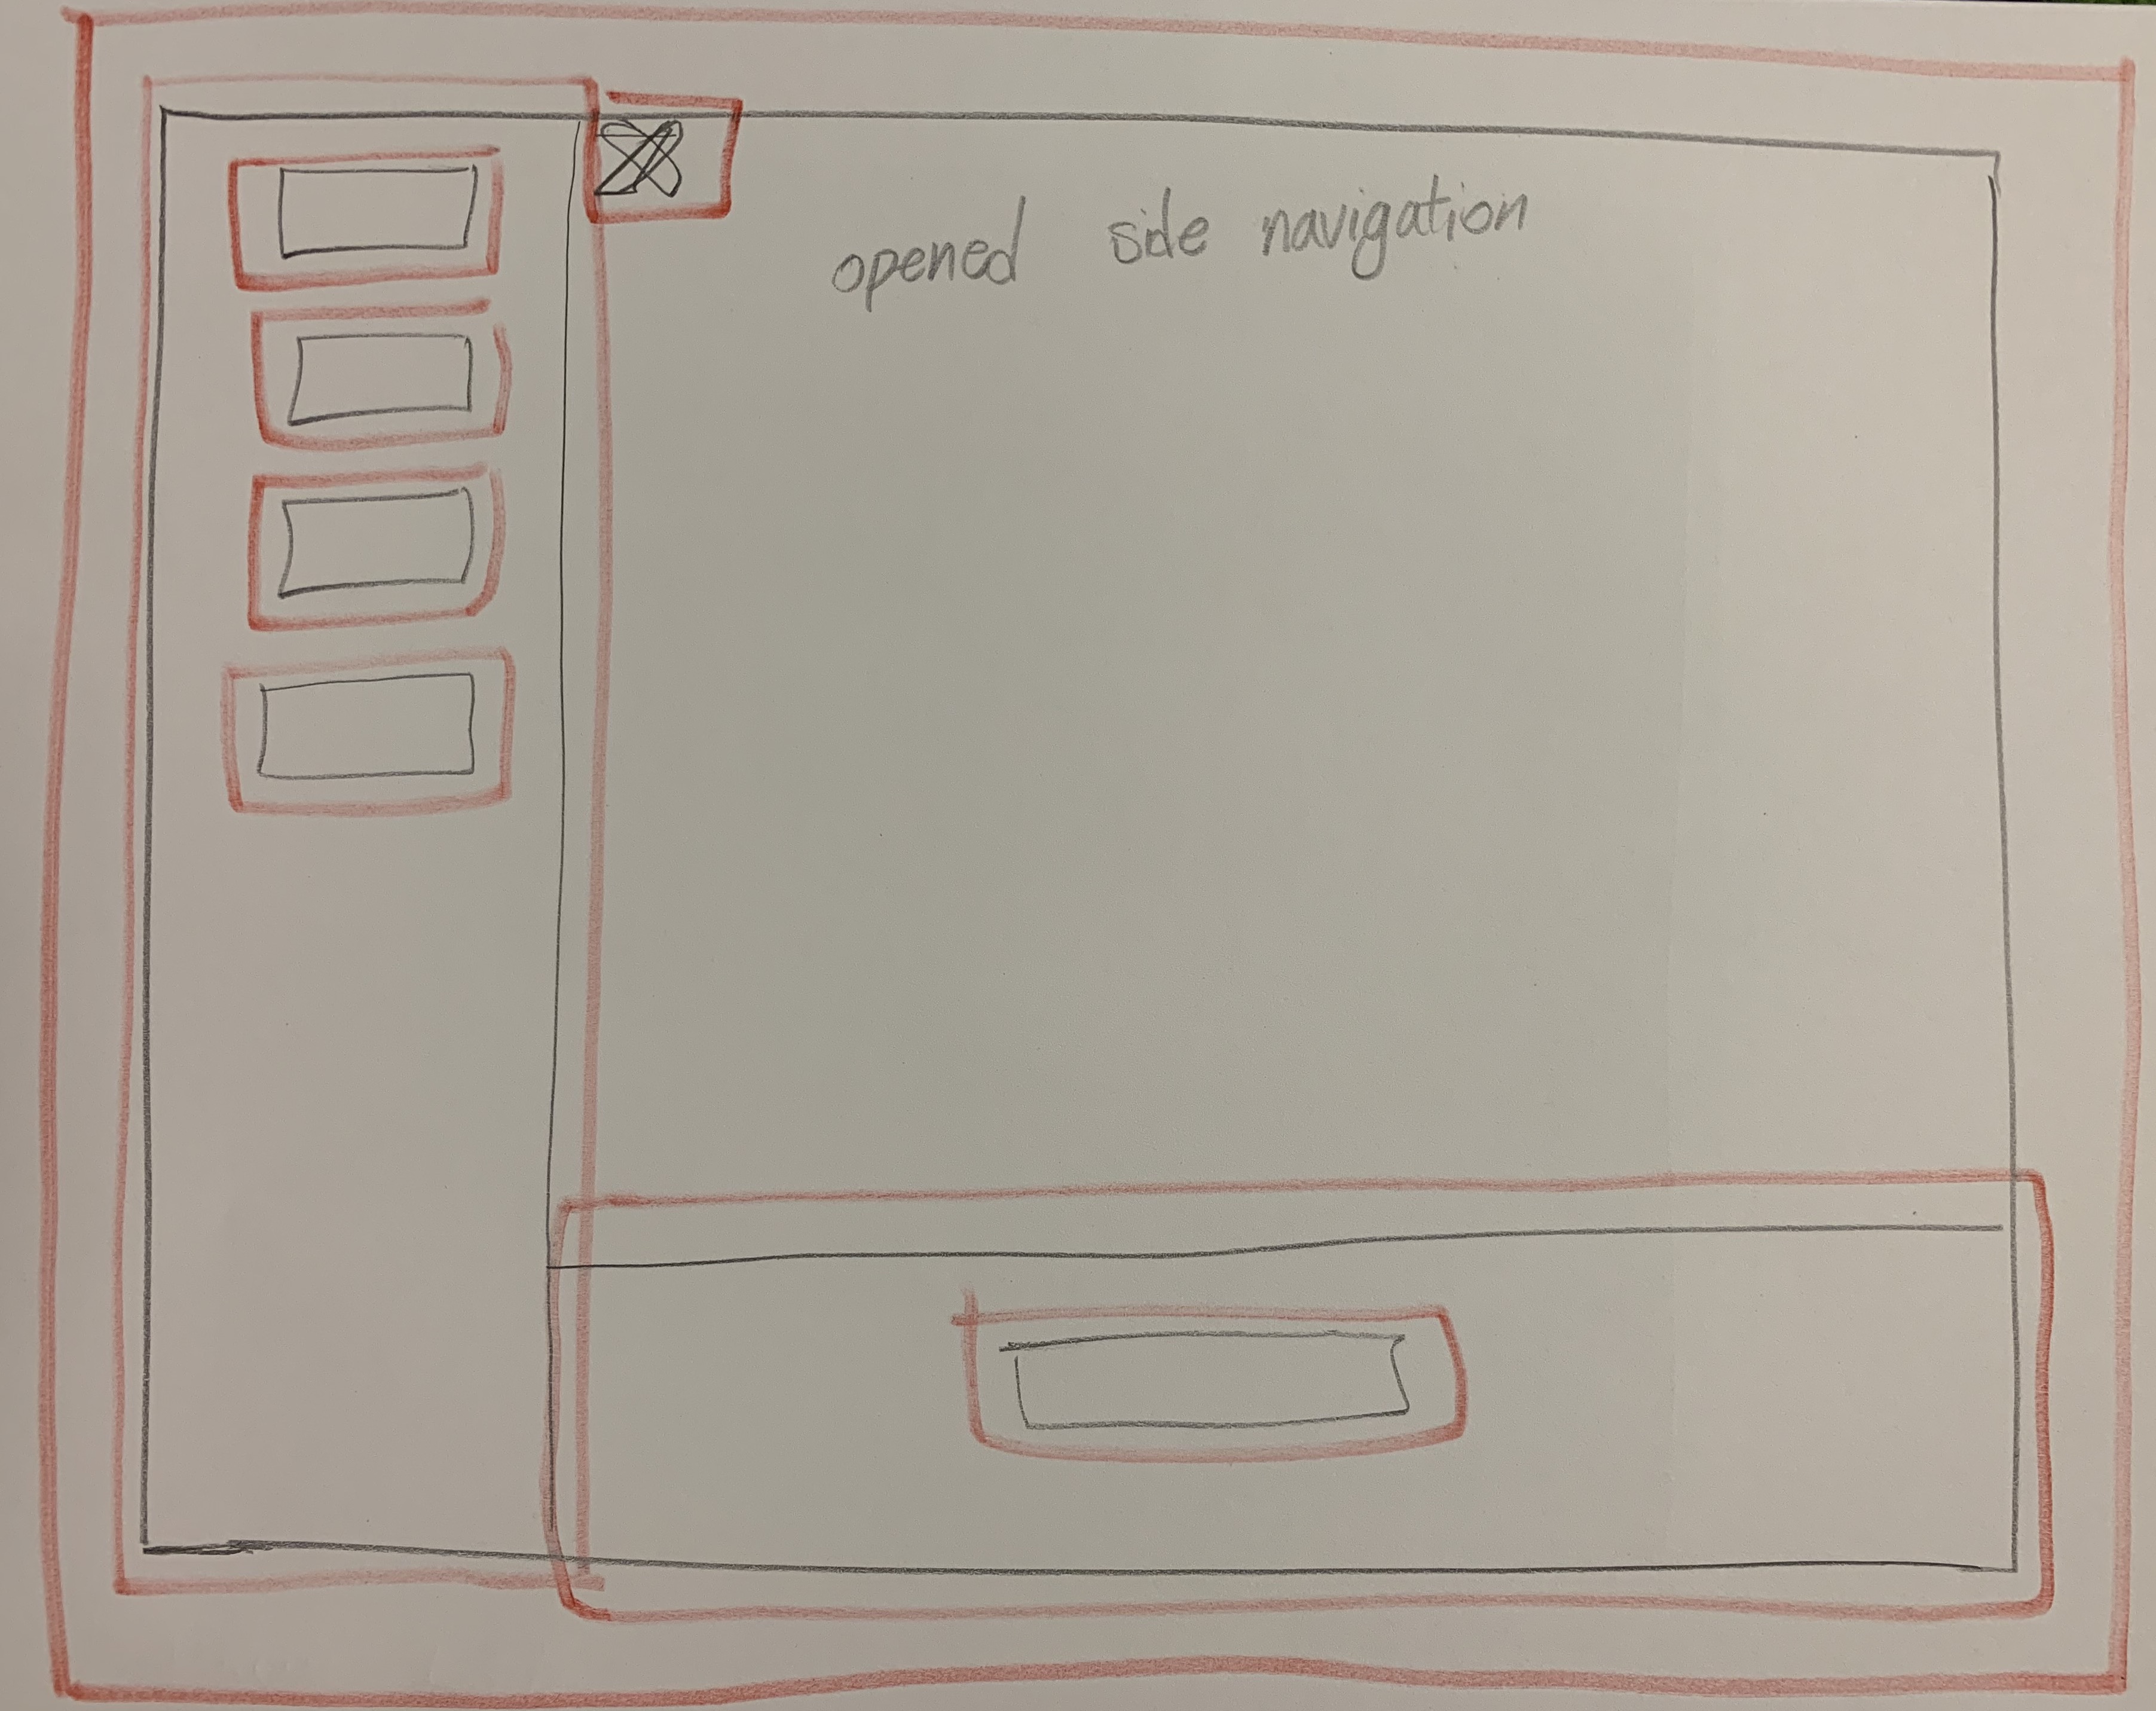 opened side navigation